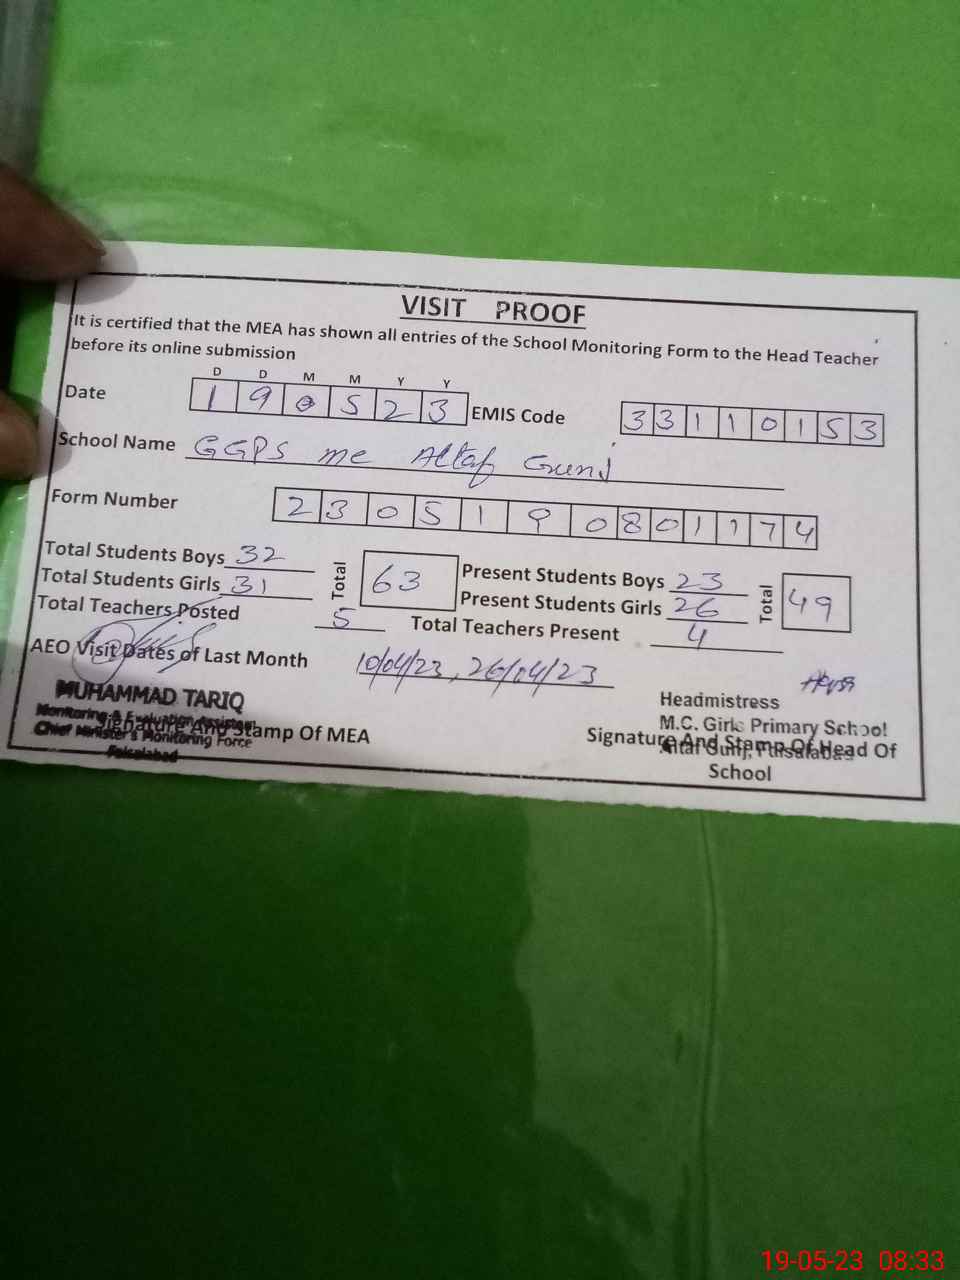 VISIT PROOF
It is certified that the MEA has shown all entries of the School Monitoring Form to the Head Teacher
before its online submission
D D M M Y Y
Date 1 9 0 5 2 3 EMIS Code 3 3 1 1 0 1 5 3
School Name GGPS mc Altaf Gunj
Form Number 2 3 0 5 1 9 0 8 0 1 1 7 4
Total Students Boys 32 Total 63 Present Students Boys 23 Total 49
Total Students Girls 31 Present Students Girls 26
Total Teachers Posted 5 Total Teachers Present 4
AEO Visit Dates of Last Month 10/04/23, 26/04/23
MUHAMMAD TARIQ
Monitoring & Evaluation Assistant
Chief Minister's Monitoring Force
Faisalabad
Signature And Stamp Of MEA
Headmistress
M.C. Girls Primary School
Altaf Gunj, Faisalabad
Signature And Stamp Of Head Of
School
19-05-23 08:33